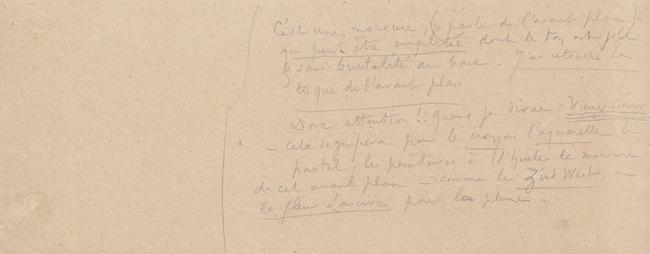 C'est une morsure, (je parle de l'avant plan)
qui peut être complétée dont le ton est joli
& sans brutalité de base. J'ai retouché la
toque de l'avant plan
Donc attention !! quand je dirai : Vieux
— cela signifiera pour le crayon l'aquarelle le
pastel, les peintures à l'huile la morsure
de cet avant plan — comme le Zuid West, ou
la fleur Lascive pour la plume.